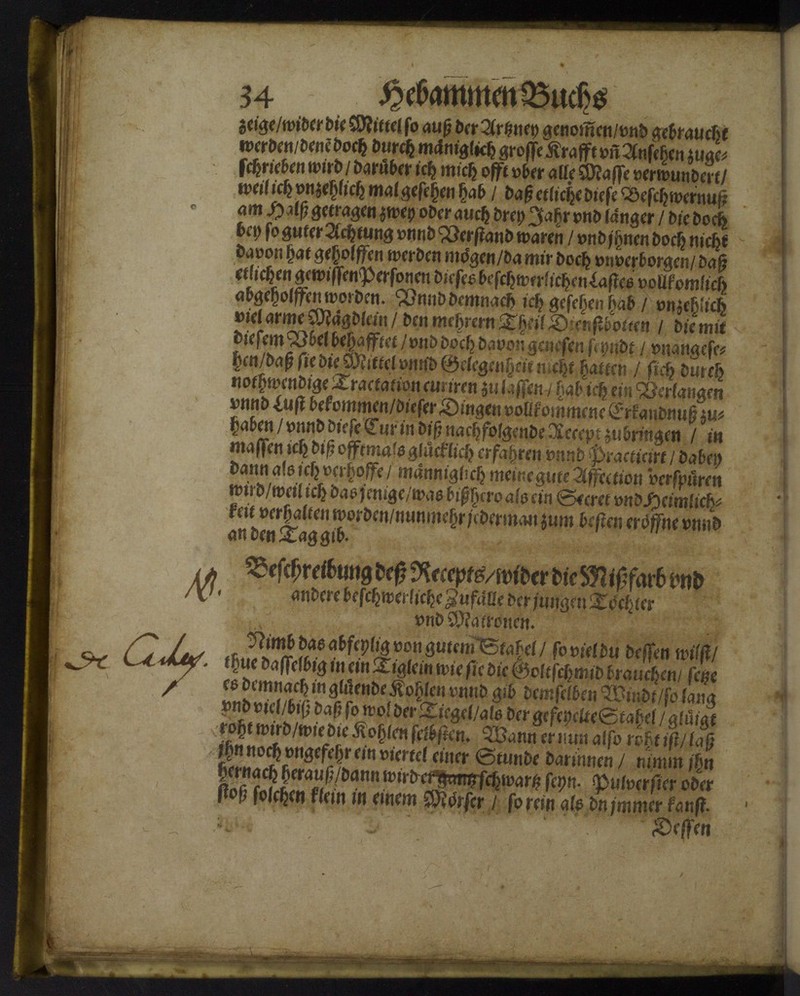 34 Hebammen Buchs
zeige/wider die Mittel so auß der Artzney genom̃en/vnd gebraucht
werden/denē doch durch mäniglich grosse Krafft vñ Ansehen zuge⸗
schrieben wird / darüber ich mich offt vber alle Masse verwundert/
weil ich vnzehlich mal gesehen hab / daß etliche diese Beschwernuß
am Halß getragen zwey oder auch drey Jahr vnd länger / die doch
bey so guter Achtung vnnd Verstand waren / vnd jhnen doch nicht
davon hat geholffen werden mögen/da mir doch vnverborgen/ daß
etlichen gewissen Personen dieses beschwerlichen Lastes vollkomlich
abgeholffen worden. Vnnd demnach ich gesehen hab / vnzehlich
viel arme Mägdlein / den mehrern Theil Dienstbotten / die mit
diesem Vbel behafftet / vnd doch davon genesen seyndt / vnangese⸗
hen/daß sie die Mittel vnnd Gelegenheit nicht hatten / sich durch
nothwendige Tractation curiren zu lassen / hab ich ein Verlangen
vnnd Lust bekommen/dieser Dingen vollkommene Erkandnuß zu⸗
haben / vnnd diese Cur in diß nachfolgende Recept zubringen / in
massen ich diß offtmals glücklich erfahren vnnd Practicirt / dabey
dann als ich verhoffe / männiglich meine gute Affection verspüren
wird/weil ich das jenige/was bißhero als ein Secret vnd Heimlich⸗
keit verhalten worden/nunmehr jederman zum besten eröffne vnnd
an den Tag gib.
Beschreibung deß Recepts/wider die Mißfarb vnd
andere beschwerliche Zufälle der jungen Töchter
vnd Matronen.
Nimb das abfeylig von gutem Stahel / so viel du dessen wilst/
thue dasselbig in ein Tiglein wie sie die Goltschmid brauchen/ setze
es demnach in glüende Kohlen vnnd gib demselben Windt/so lang
vnd viel/biß daß so wol der Tiegel/als der gefeyelte Stahel / glüigt
roht wird/wie die Kohlen selbsten. Wann er nun also roht ist/ laß
jhn noch vngefehr ein viertel einer Stunde darinnen / nimm jhn
hernach herauß/dann wird er gantz schwartz seyn. Pulversier oder
stoß solchen klein in einem Mörser / so rein als du jmmer kanst.
Dessen